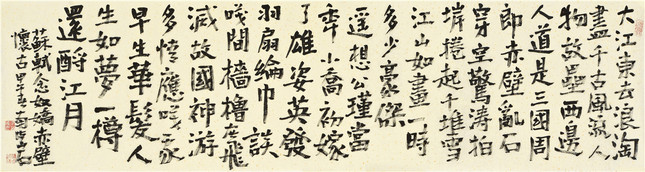 大江東去浪淘
盡千古風流人
物故壘西邊
人道是三國周
郎赤壁亂石
穿空驚濤拍
堓捲起千堆雪
江山如畫一時
多少豪傑
遥想公瑾當
秊小喬初嫁
了雄姿英發
羽扇綸巾談
咲間檣櫓灰飛
滅故國神游
多情應咲我
早生華髮人
生如夢一樽
還酹江月
蘇軾念奴嬌赤壁
懷古甲午